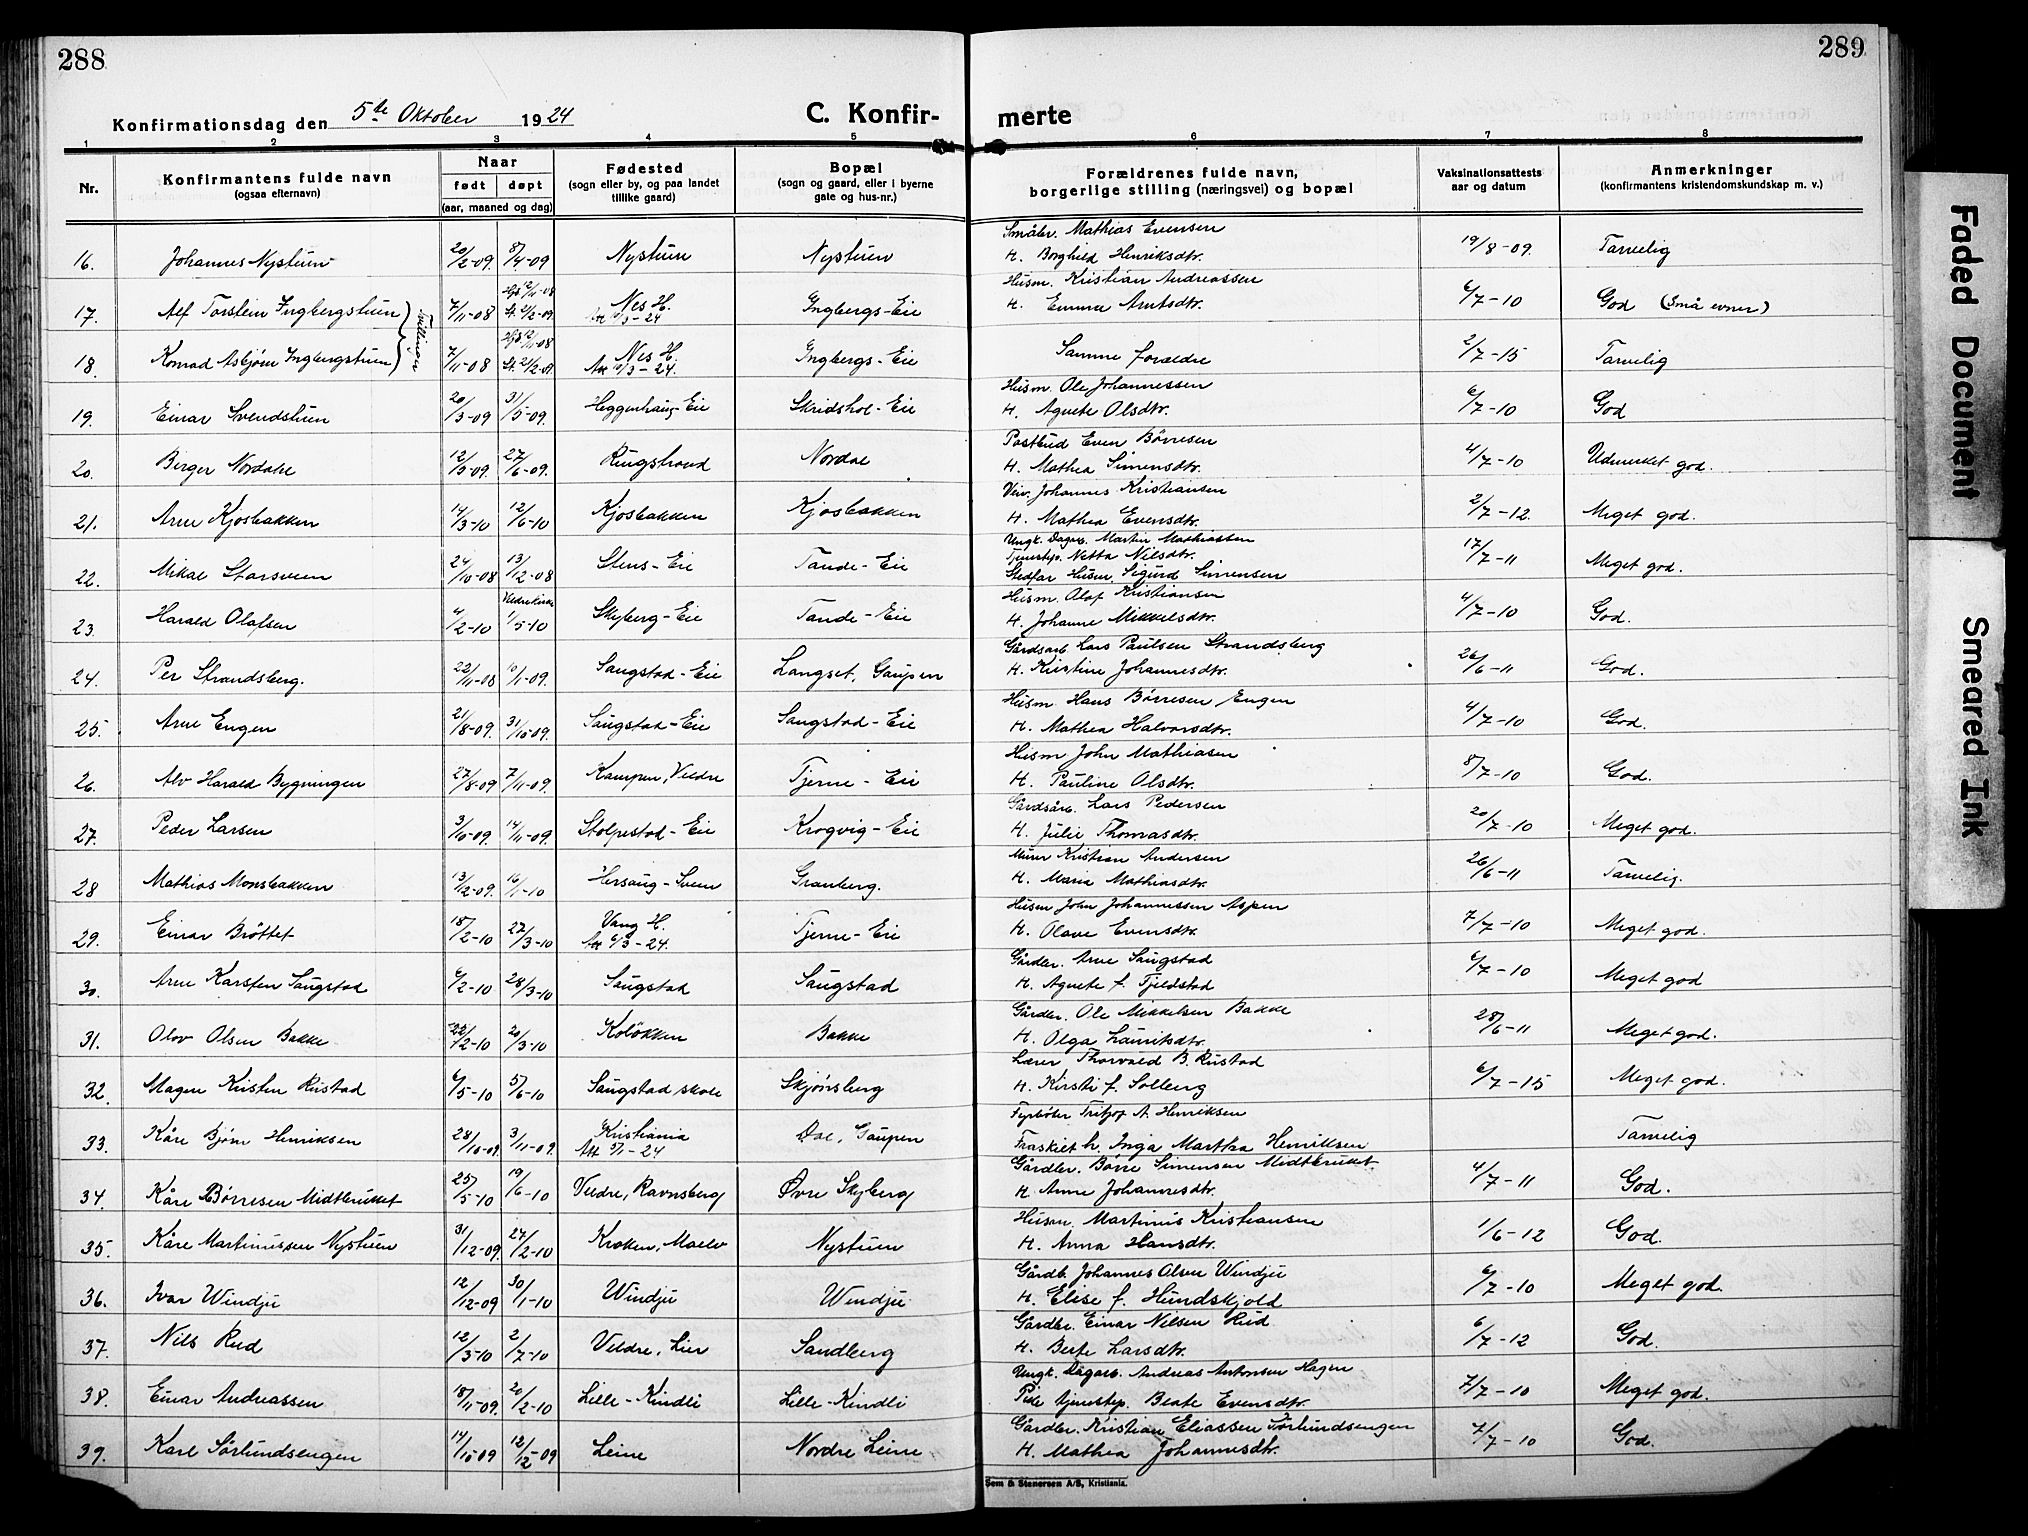 288
289
Konfirmationsdag den 5te Oktober 1924
C. Konfir-
merte
1 2 3 4 5 6 7 8
Nr.
Konfirmantens fulde navn
(ogsaa efternavn)
Naar
født døpt
(aar, maaned og dag)
Fødested
(sogn eller by, og paa landet
tillike gaard)
Bopæl
(sogn og gaard, eller i byerne
gate og hus-nr.)
Forældrenes fulde navn,
borgerlige stilling (næringsvei) og bopæl
Vaksinationsattests
aar og datum
Anmerkninger
(konfirmantens kristendomskundskap m. v.)
Småbr. Mathias Evensen
16. Johannes Nystuen 20/2-09. 8/4-09 Nystuen Nystuen H. Borghild Henriksdtr. 19/8-09. Tarvelig
Husm. Kristian Andreassen
17. Alf Torstein Ingbergstuen 7/11-08 Hjd 12/11-08 St. 21/2-09 Nes H. Att 10/3-24 Ingbergs-Eie H. Emma Arntsdtr. 6/7-10 God (Små evner)
Tvillinger
18. Konrad Asbjørn Ingbergstuen 7/11-08 Hjd 12/11-08 St. 21/2-09 Nes H. Att 10/3-24. Ingbergs-Eie Samme foreldre 2/7-15 Tarvelig
Husm. Ole Johannessen
19. Einar Svendstuen 20/3-09 31/5-09. Heggenhaug-Eie Skridshol-Eie H. Agnete Olsdtr. 6/7-10 God
Postbud Even Børresen
20. Birger Nordahl 12/5-09. 27/6-09. Ringstrand Nordal H. Mathea Simensdtr. 4/7-10 Udmerket god.
Veiv. Johannes Kristiansen
21. Arne Kjosbakken 14/3-10 12/6-10 Kjosbakken Kjosbakken H. Mathea Evensdtr. 2/7-12. Meget god.
Ungk. Dagarb. Martin Mathiassen
Tjenestep. Netta Nilsdtr.
22. Mikal Storsveen 24/10-08 13/12-08 Stens-Eie Tande-Eie Stedfar Husm. Sigurd Simensen 17/7-11 Meget god.
Husm. Olaf Kristiansen
23. Harald Olafsen 4/2-10 Veldre kirke 1/5-10 Skyberg-Eie Tande-Eie H. Johanne Mikkelsdtr. 4/7-10 God.
Gårdsarb. Lars Paulsen Strandsberg
24. Per Strandsberg. 22/11-08 10/1-09. Saugstad-Eie Langset, Gaupen H. Kristine Johannesdtr. 26/6-11 God.
Husm. Hans Børresen Engen
25. Arne Engen 21/8-09. 31/10-09. Saugstad-Eie Saugstad-Eie H. Mathea Halvorsdtr. 4/7-10 God.
Husm John Mathiasen
26. Alv Harald Bygningen 27/8-09 7/11-09. Kampen, Veldre Tjerne-Eie H. Pauline Olsdtr. 8/7-10 God.
Gårdsarb. Lars Pedersen
27. Peder Larsen 3/10-09. 14/11-09. Stolpestad-Eie Krogvig-Eie H. Julie Thomasdtr. 20/7-10 Meget god.
Murer Kristian Andersen
28 Mathias Monsbakken 13/12-09. 16/1-10 Hersaug-Sveen Granberg. H. Maria Mathiasdtr. 26/6-11 Tarvelig.
Husm John Johannessen Aspen
29. Einar Bråttet 18/2-10 27/3-10 Vang H. Att 6/3-24. Tjerne-Eie H. Olave Evensdtr. 7/7-10 Meget god.
Gårdbr. Arne Saugstad
30. Arne Karsten Saugstad 6/2-10 28/3-10 Saugstad Saugstad H. Agnete f. Tjeldstad 6/7-10 Meget god
Gårdbr. Ole Mikkelsen Bakke
31. Olav Olsen Bakke 22/2-10 20/3-10 Koløkken Bakke H. Olga Lauritsdtr. 28/6-11 Meget god.
Lærer Thorvald B. Rustad
32. Magne Kristen Rustad 6/5-10 5/6-10 Saugstad skole Skjønsberg H. Kirsti f. Solberg 6/7-15 Meget god.
Fyrbøter Tritjof A. Henriksen
33. Kåre Bjørn Henriksen 28/10-09. 3/11-09. Kristiania Att 5/1-24 Dal, Gaupen Fraskilt h. Inga Martha Henriksen Tarvelig
Gårdbr. Børre Simensen Midtbruket.
34. Kåre Børresen Midtbruket 25/5-10 19/6-10 Veldre, Ravnsberg Øvre Skyberg H. Anne Johannesdtr. 4/7-11 God.
Husm. Martinus Kristiansen
35. Kåre Martinussen Nystuen 31/12-09. 27/2-10 Kroken, Moelv Nystuen H. Anna Hansdtr. 1/6-12 God.
Gårdb. Johannes Olsen Windju
36. Ivar Windju 12/12-09 30/1-10 Windju Windju H. Elise f. Hundskjold 6/7-10 Meget god.
Gårdbr. Einar Nilsen Rud
37. Nils Rud 12/3-10 2/7-10 Veldre, Lier Sandberg H. Berte Larsdtr. 6/7-12 God.
Ungk. Dagarb. Andreas Antonsen Hagen
38. Einar Andreassen 18/11-09. 20/2-10 Lille-Kindli Lille-Kindli Pike tjenestep. Beate Evensdtr. 7/7-10 Meget god.
Gårdbr. Kristian Eliassen Sørlundsengen
39. Karl Sørlundsengen 14/10-09 12/12-09 Leine Nordre Leine H. Mathea Johannesdtr. 7/7-10 God.
Sem & Stenersen A/S, Kristiania.
Faded Document
Smeared Ink